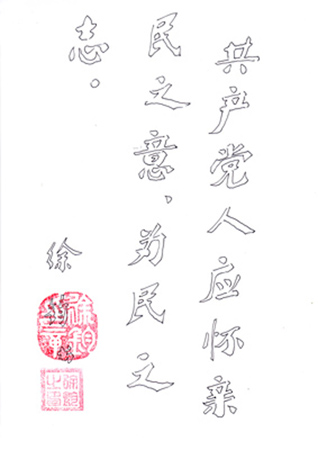 共产党人应怀亲
民之意、为民之
志。
徐